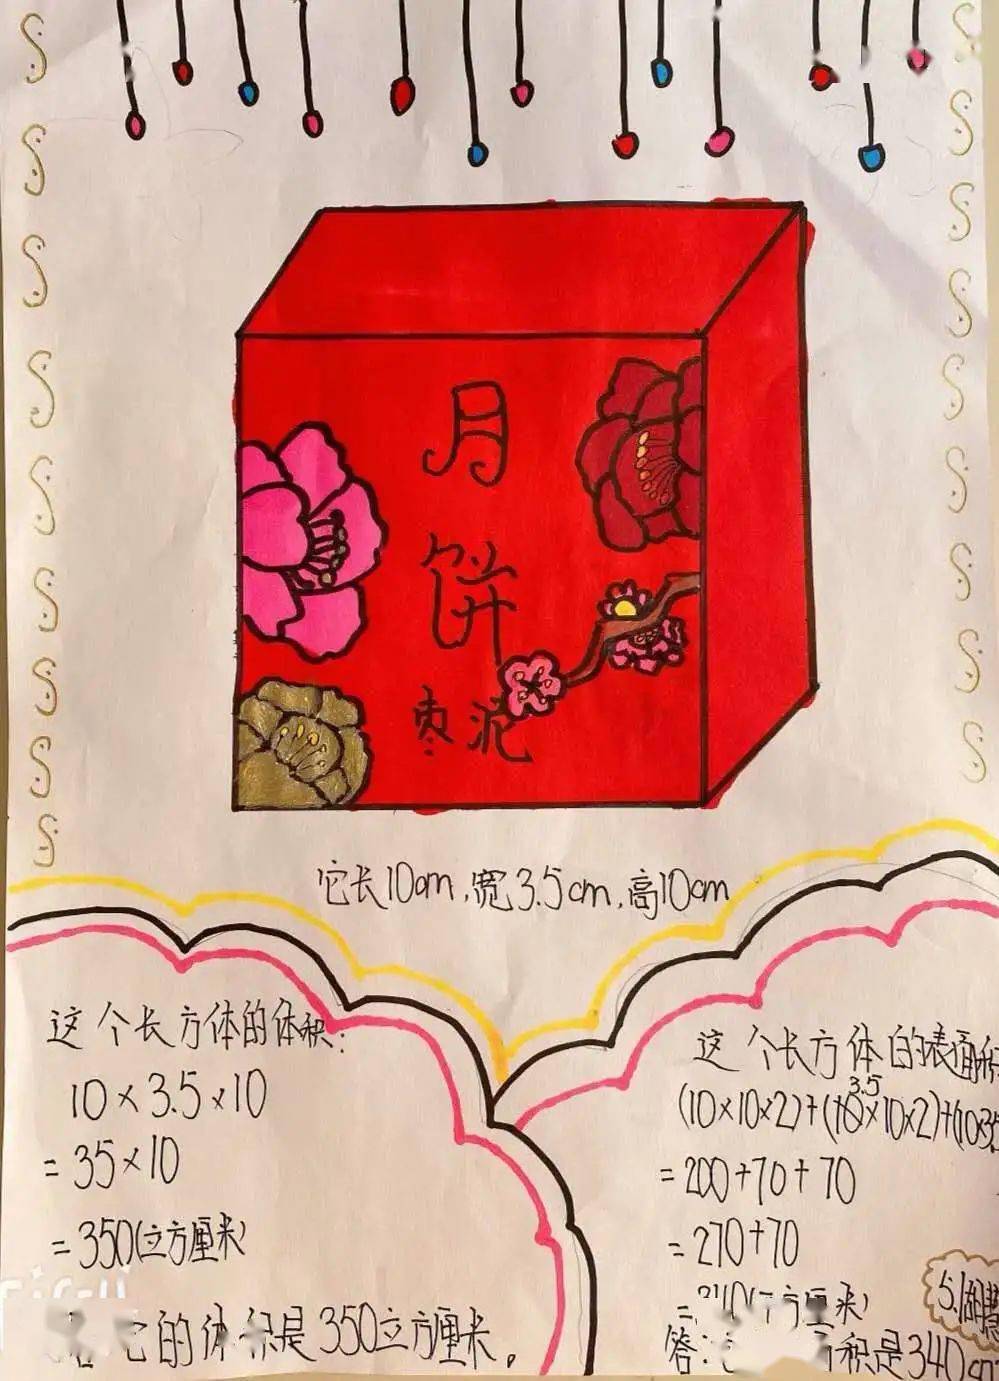 月
饼
枣泥
它长10cm,宽3.5cm,高10cm
这个长方体的体积:
10×3.5×10
=35×10
=350(立方厘米)
它的体积是350立方厘米。
这个长方体的表面积
(10×10×2)+(3.5×10×2)+(10×3.5
=200+70+70
=270+70
=340(平方厘米)
答:
积是340cm